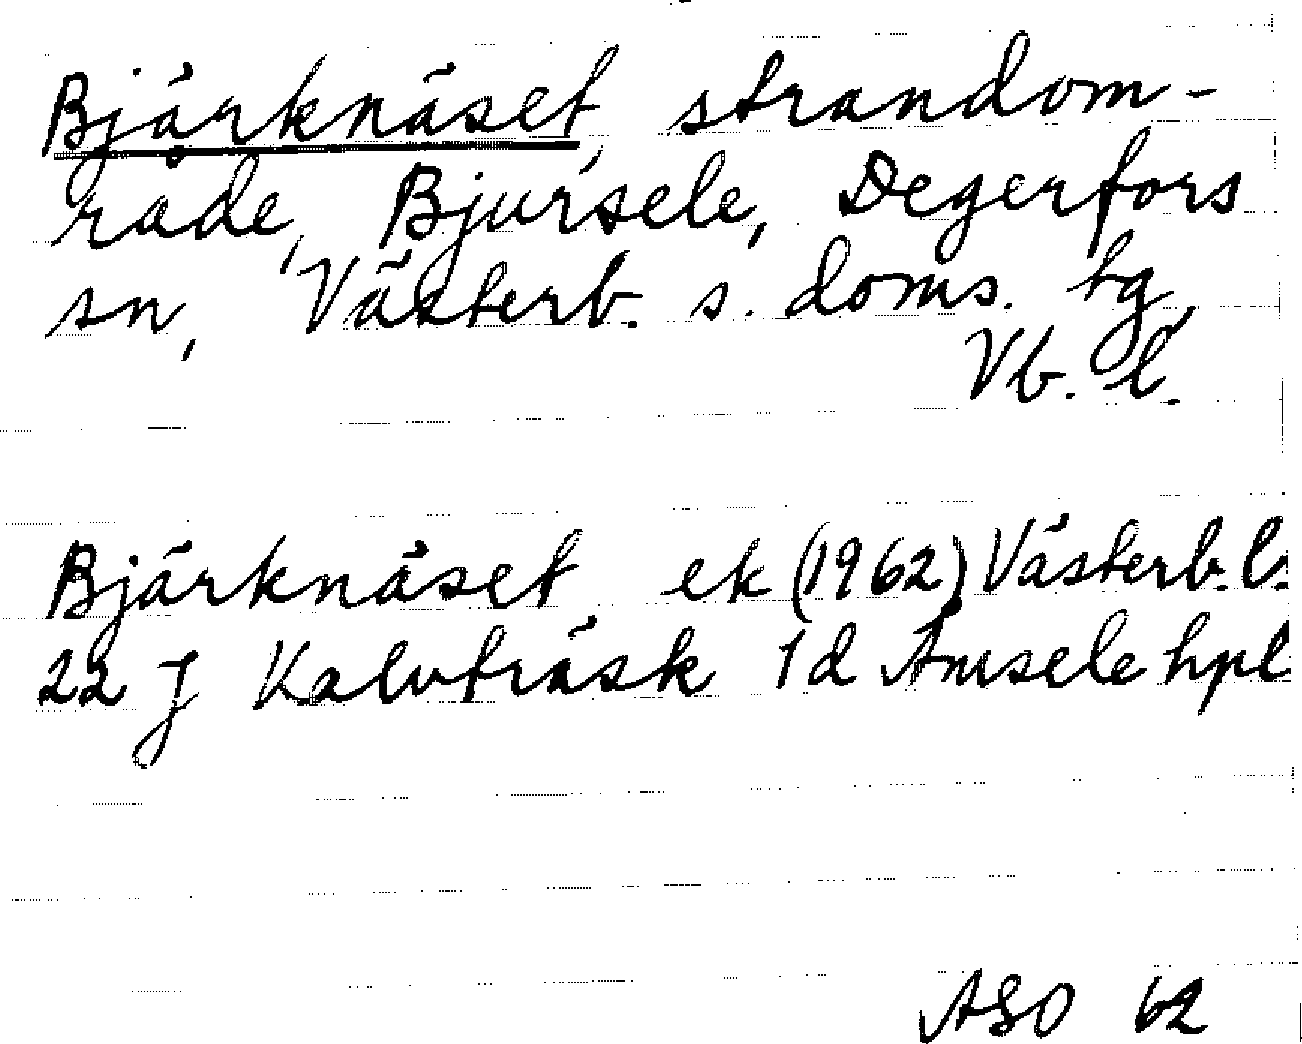 Bjärknäset, strandom-
råde, Bjursele, Degerfors
sn, Västerb. s. doms. tg,
Vb. l.
Bjärknäset ek (1962) Västerb. l.
22 J Kalvträsk 1d Åmsele hpl
ASO 62